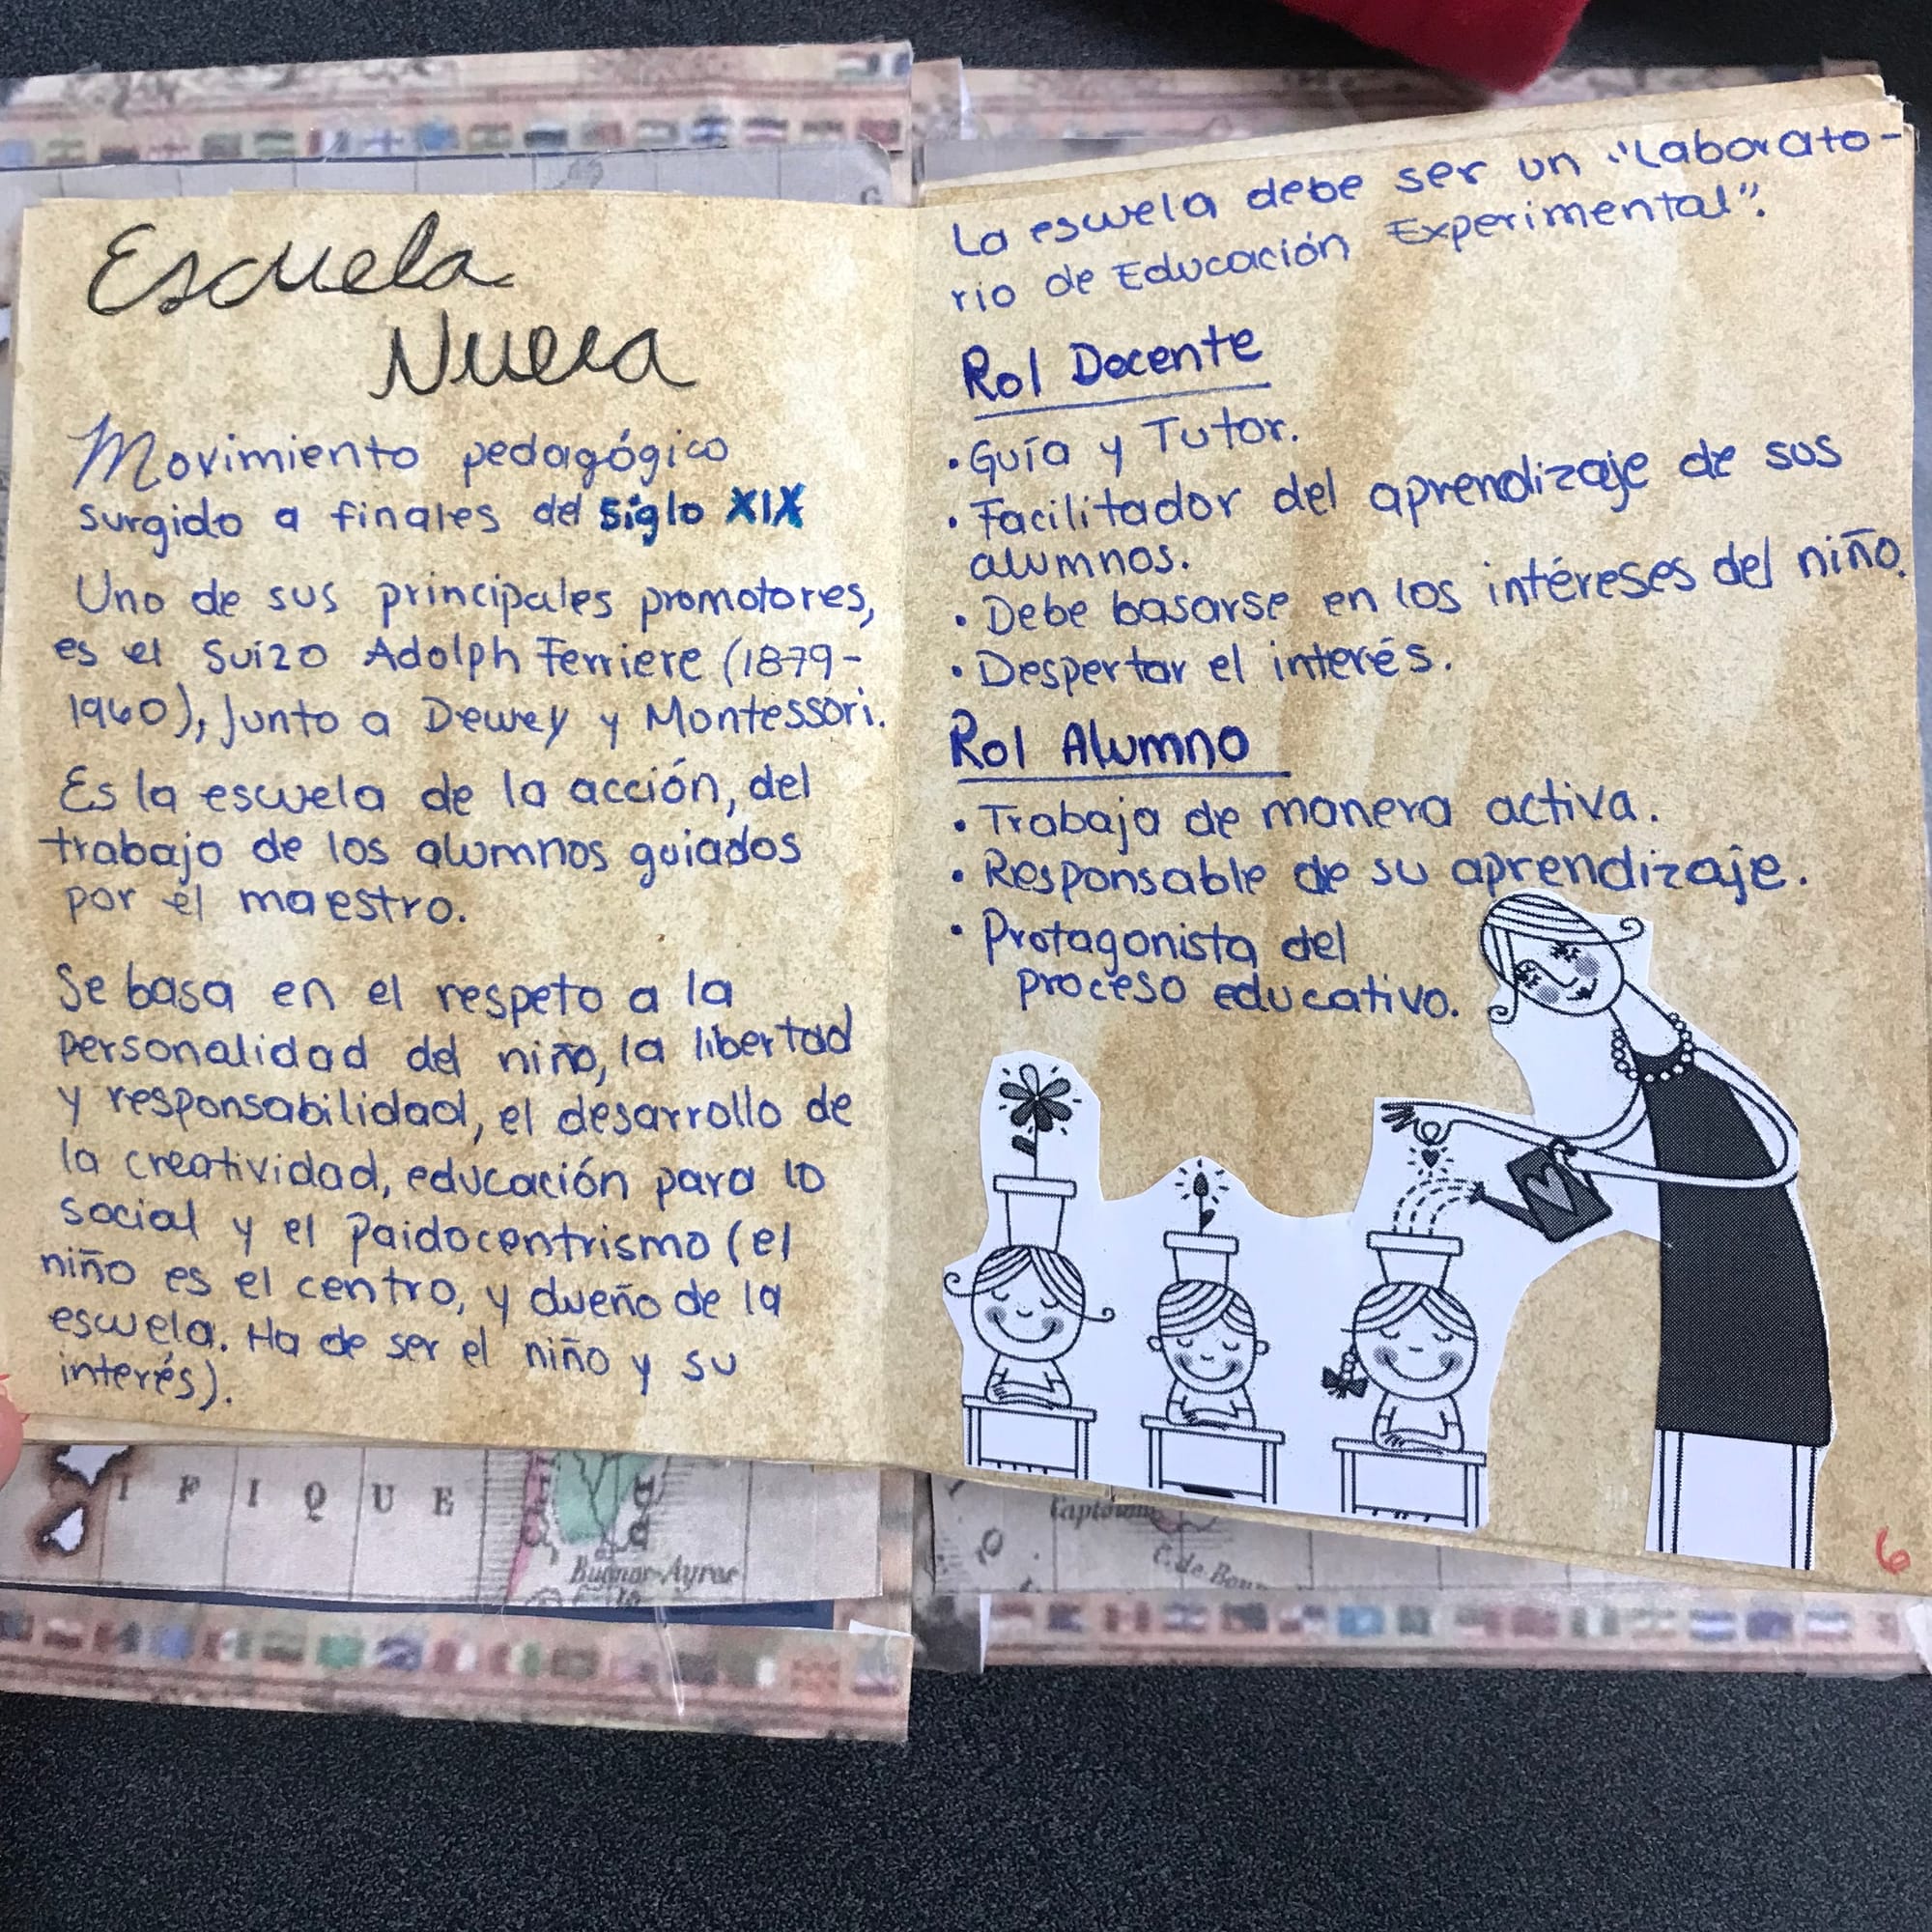 Escuela
Nueva
Movimiento pedagógico
surgido a finales del siglo XIX
Uno de sus principales promotores,
es el Suizo Adolph Ferriere (1879-
1960), junto a Dewey y Montessori.
Es la escuela de la acción, del
trabajo de los alumnos guiados
por él maestro.
Se basa en el respeto a la
personalidad del niño, la libertad
y responsabilidad, el desarrollo de
la creatividad, educación para lo
social y el Paidocentrismo (el
niño es el centro, y dueño de la
escuela. Ha de ser el niño y su
interés).
I F I Q U E
Buenos-Ayres
La escuela debe ser un "Laborato-
rio de Educación Experimental".
Rol Docente
• Guía y Tutor.
• Facilitador del aprendizaje de sus
alumnos.
• Debe basarse en los intéreses del niño.
• Despertar el interés.
Rol Alumno
• Trabaja de manera activa.
• Responsable de su aprendizaje.
• Protagonista del
proceso educativo.
6
C. de Bon